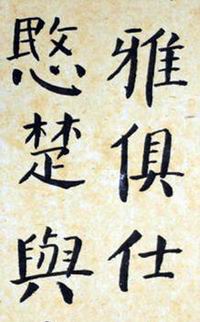 雅俱仕
愍楚與